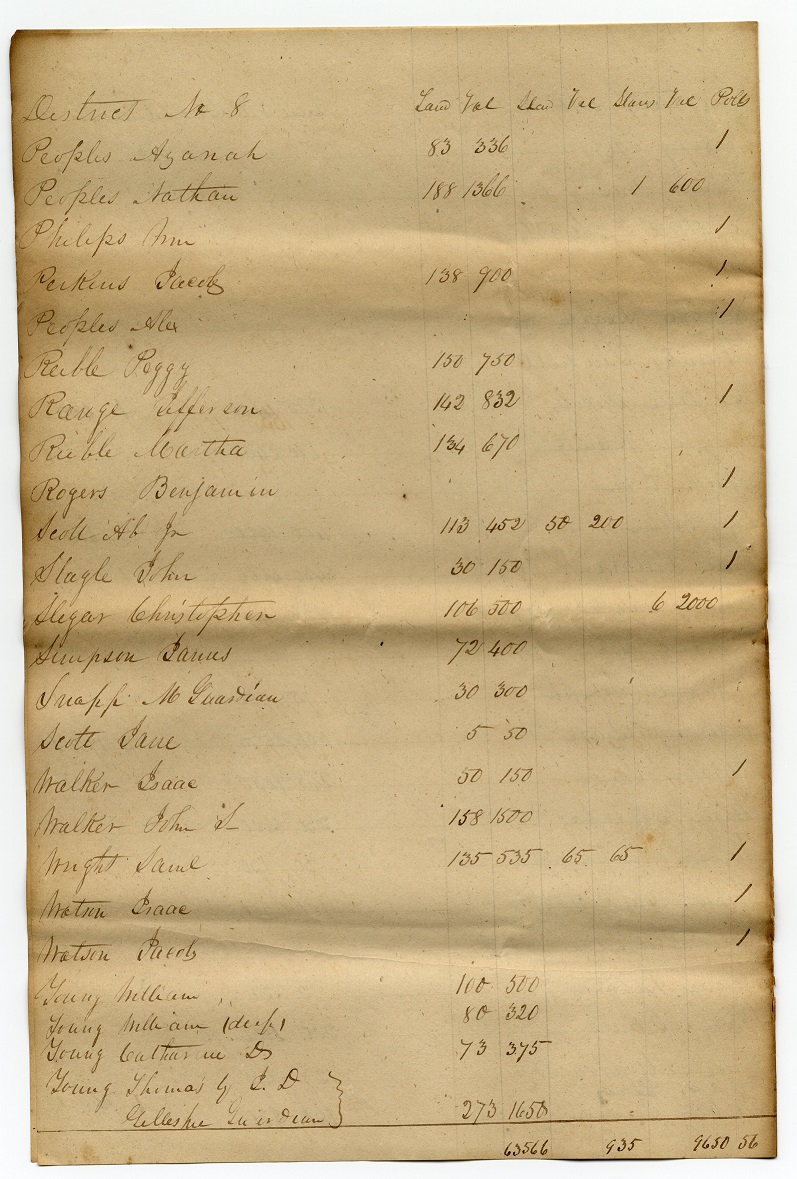 District No 8 Land Val Land Val Slaves Val Polls
Peoples Azanah 83 336 1
Peoples Nathan 188 1366 1 600
Philips Wm 1
Perkins Jacob 138 900 1
Peoples Alex 1
Reible Peggy 150 750
Range Jefferson 142 832 1
Reible Martha 134 670
Rogers Benjamin 1
Scott Ab Jr 113 452 50 200 1
Slagle John 30 150 1
Sligar Christopher 106 500 6 2000
Simpson James 72 400
Snapp M Guardian 30 300
Scott Jane 5 50
Walker Isaac 50 150 1
Walker John S 158 1500
Wright Saml 135 535 65 65 1
Watson Isaac 1
Watson Jacob 1
Young William 100 500
Young William 80 320
Young Catharine D 73 375
Young Thomas by J. D
Gillespie Guardian 273 1650
63566 935 9650 56